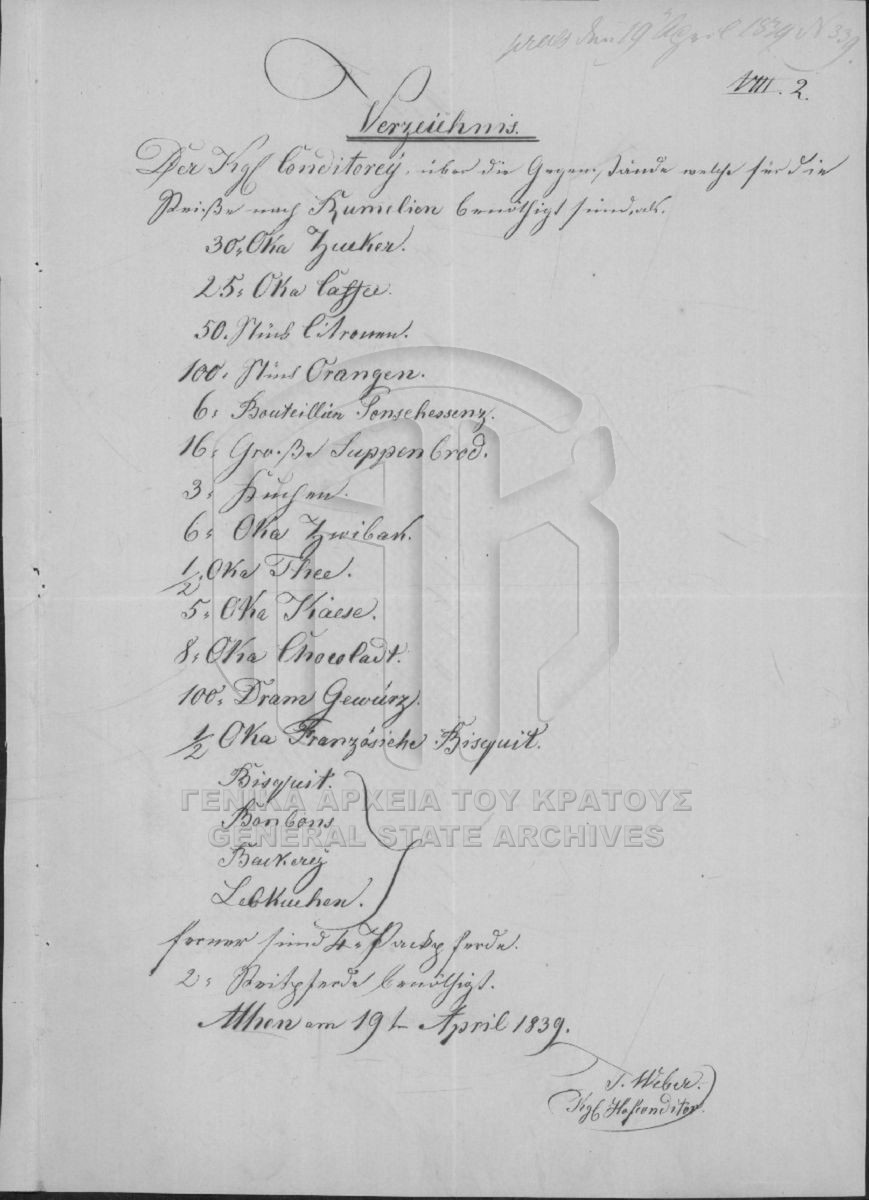 praes den 19 April 1839 N 339.
VIII. 2.
Verzeichnis.
Der Kgl Conditorey, über die Gegenstände welche für die
Reiße nach Rumelien benöthigt sind, als.
30, Oka Zucker.
25, Oka Caffee.
50. Stück Citronen.
100, Stück Orangen.
6, Bouteillen Ponschessenz.
16, Große Suppenbrod.
3, Kuchen.
6, Oka Zwiback.
1/2, Oka Thee.
5, Oka Kaese.
8, Oka Chocoladt.
100, Dram Gewürz.
1/2 Oka Französiche Bisquit.
Bisquit.
Bonbons
Backerey
Lebkuchen.
ferner sind 4, Packpferde.
2, Reitpferde benöthigt.
Athen am 19t April 1839.
J. Weber.
Kgl Hofconditor.
ΓΕΝΙΚΑ ΑΡΧΕΙΑ ΤΟΥ ΚΡΑΤΟΥΣ
GENERAL STATE ARCHIVES